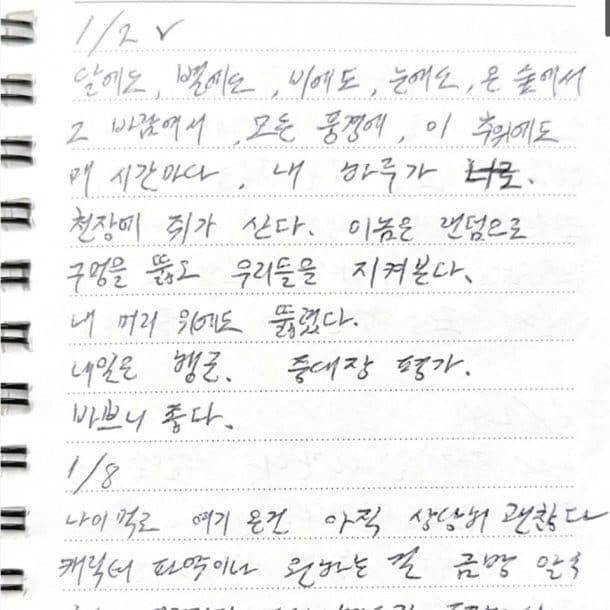 1/2 ✓
달에도, 별에도, 비에도, 눈에도, 온 숲에서
그 바람에서, 모든 풍경에, 이 추위에도
매 시간마다, 내 하루가 너로.
천장에 쥐가 산다. 이놈은 랜덤으로
구멍을 뚫고 우리들을 지켜본다.
내 머리 위에도 뚫렸다.
내일은 행군. 중대장 평가.
바쁘니 좋다.
1/8
나이 먹고 여기 온건 아직 상당히 괜찮다
캐릭터 파악이나 원하는 걸 금방 알수